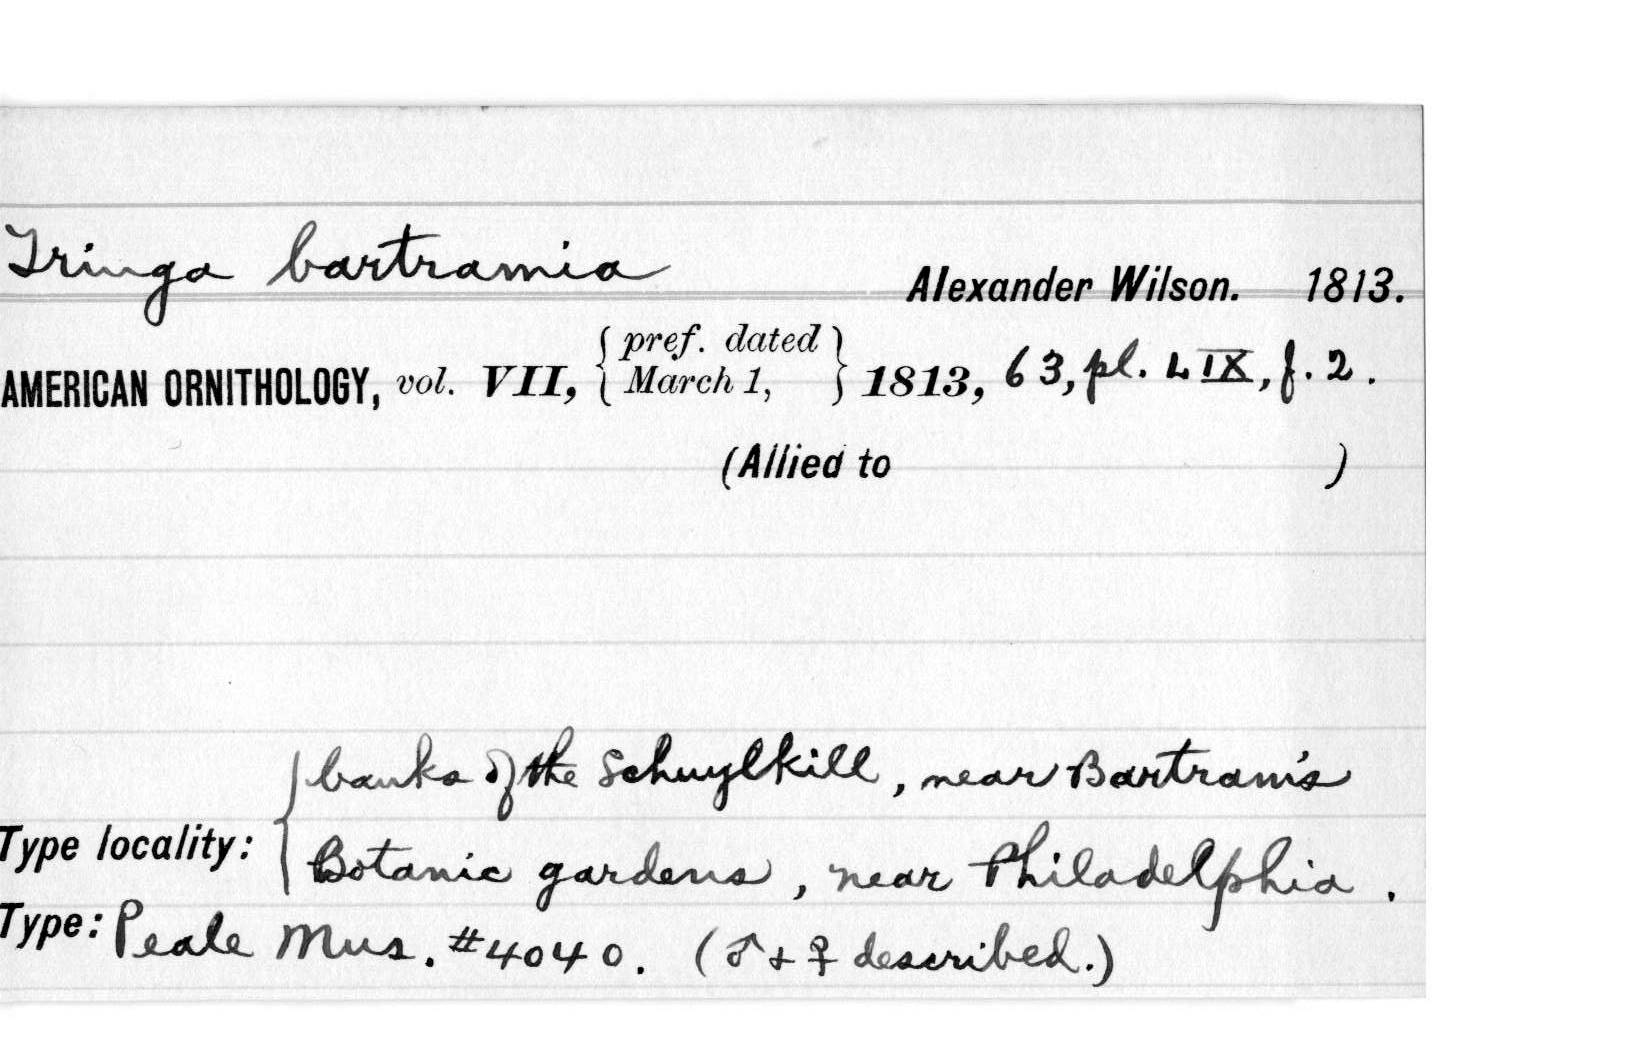 Tringa bartramia
Alexander Wilson. 1813.
AMERICAN ORNITHOLOGY, vol. VII, { pref. dated March 1, } 1813, 63, pl. LIX, f. 2.
(Allied to )
Type locality: { banks of the Schuylkill, near Bartram's
Botanic gardens, near Philadelphia.
Type: Peale Mus. #4040. (♂ + ♀ described.)